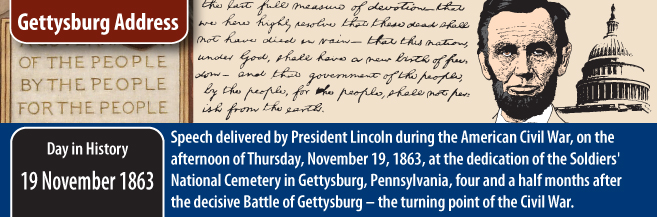 Gettysburg Address
OF THE PEOPLE
BY THE PEOPLE
FOR THE PEOPLE
the last full measure of devotion - that
we here highly resolve that these dead shall
not have died in vain - that this nation,
under God, shall have a new birth of free-
dom - and that government of the people,
by the people, for the people, shall not per-
ish from the earth.
Day in History
19 November 1863
Speech delivered by President Lincoln during the American Civil War, on the
afternoon of Thursday, November 19, 1863, at the dedication of the Soldiers'
National Cemetery in Gettysburg, Pennsylvania, four and a half months after
the decisive Battle of Gettysburg – the turning point of the Civil War.